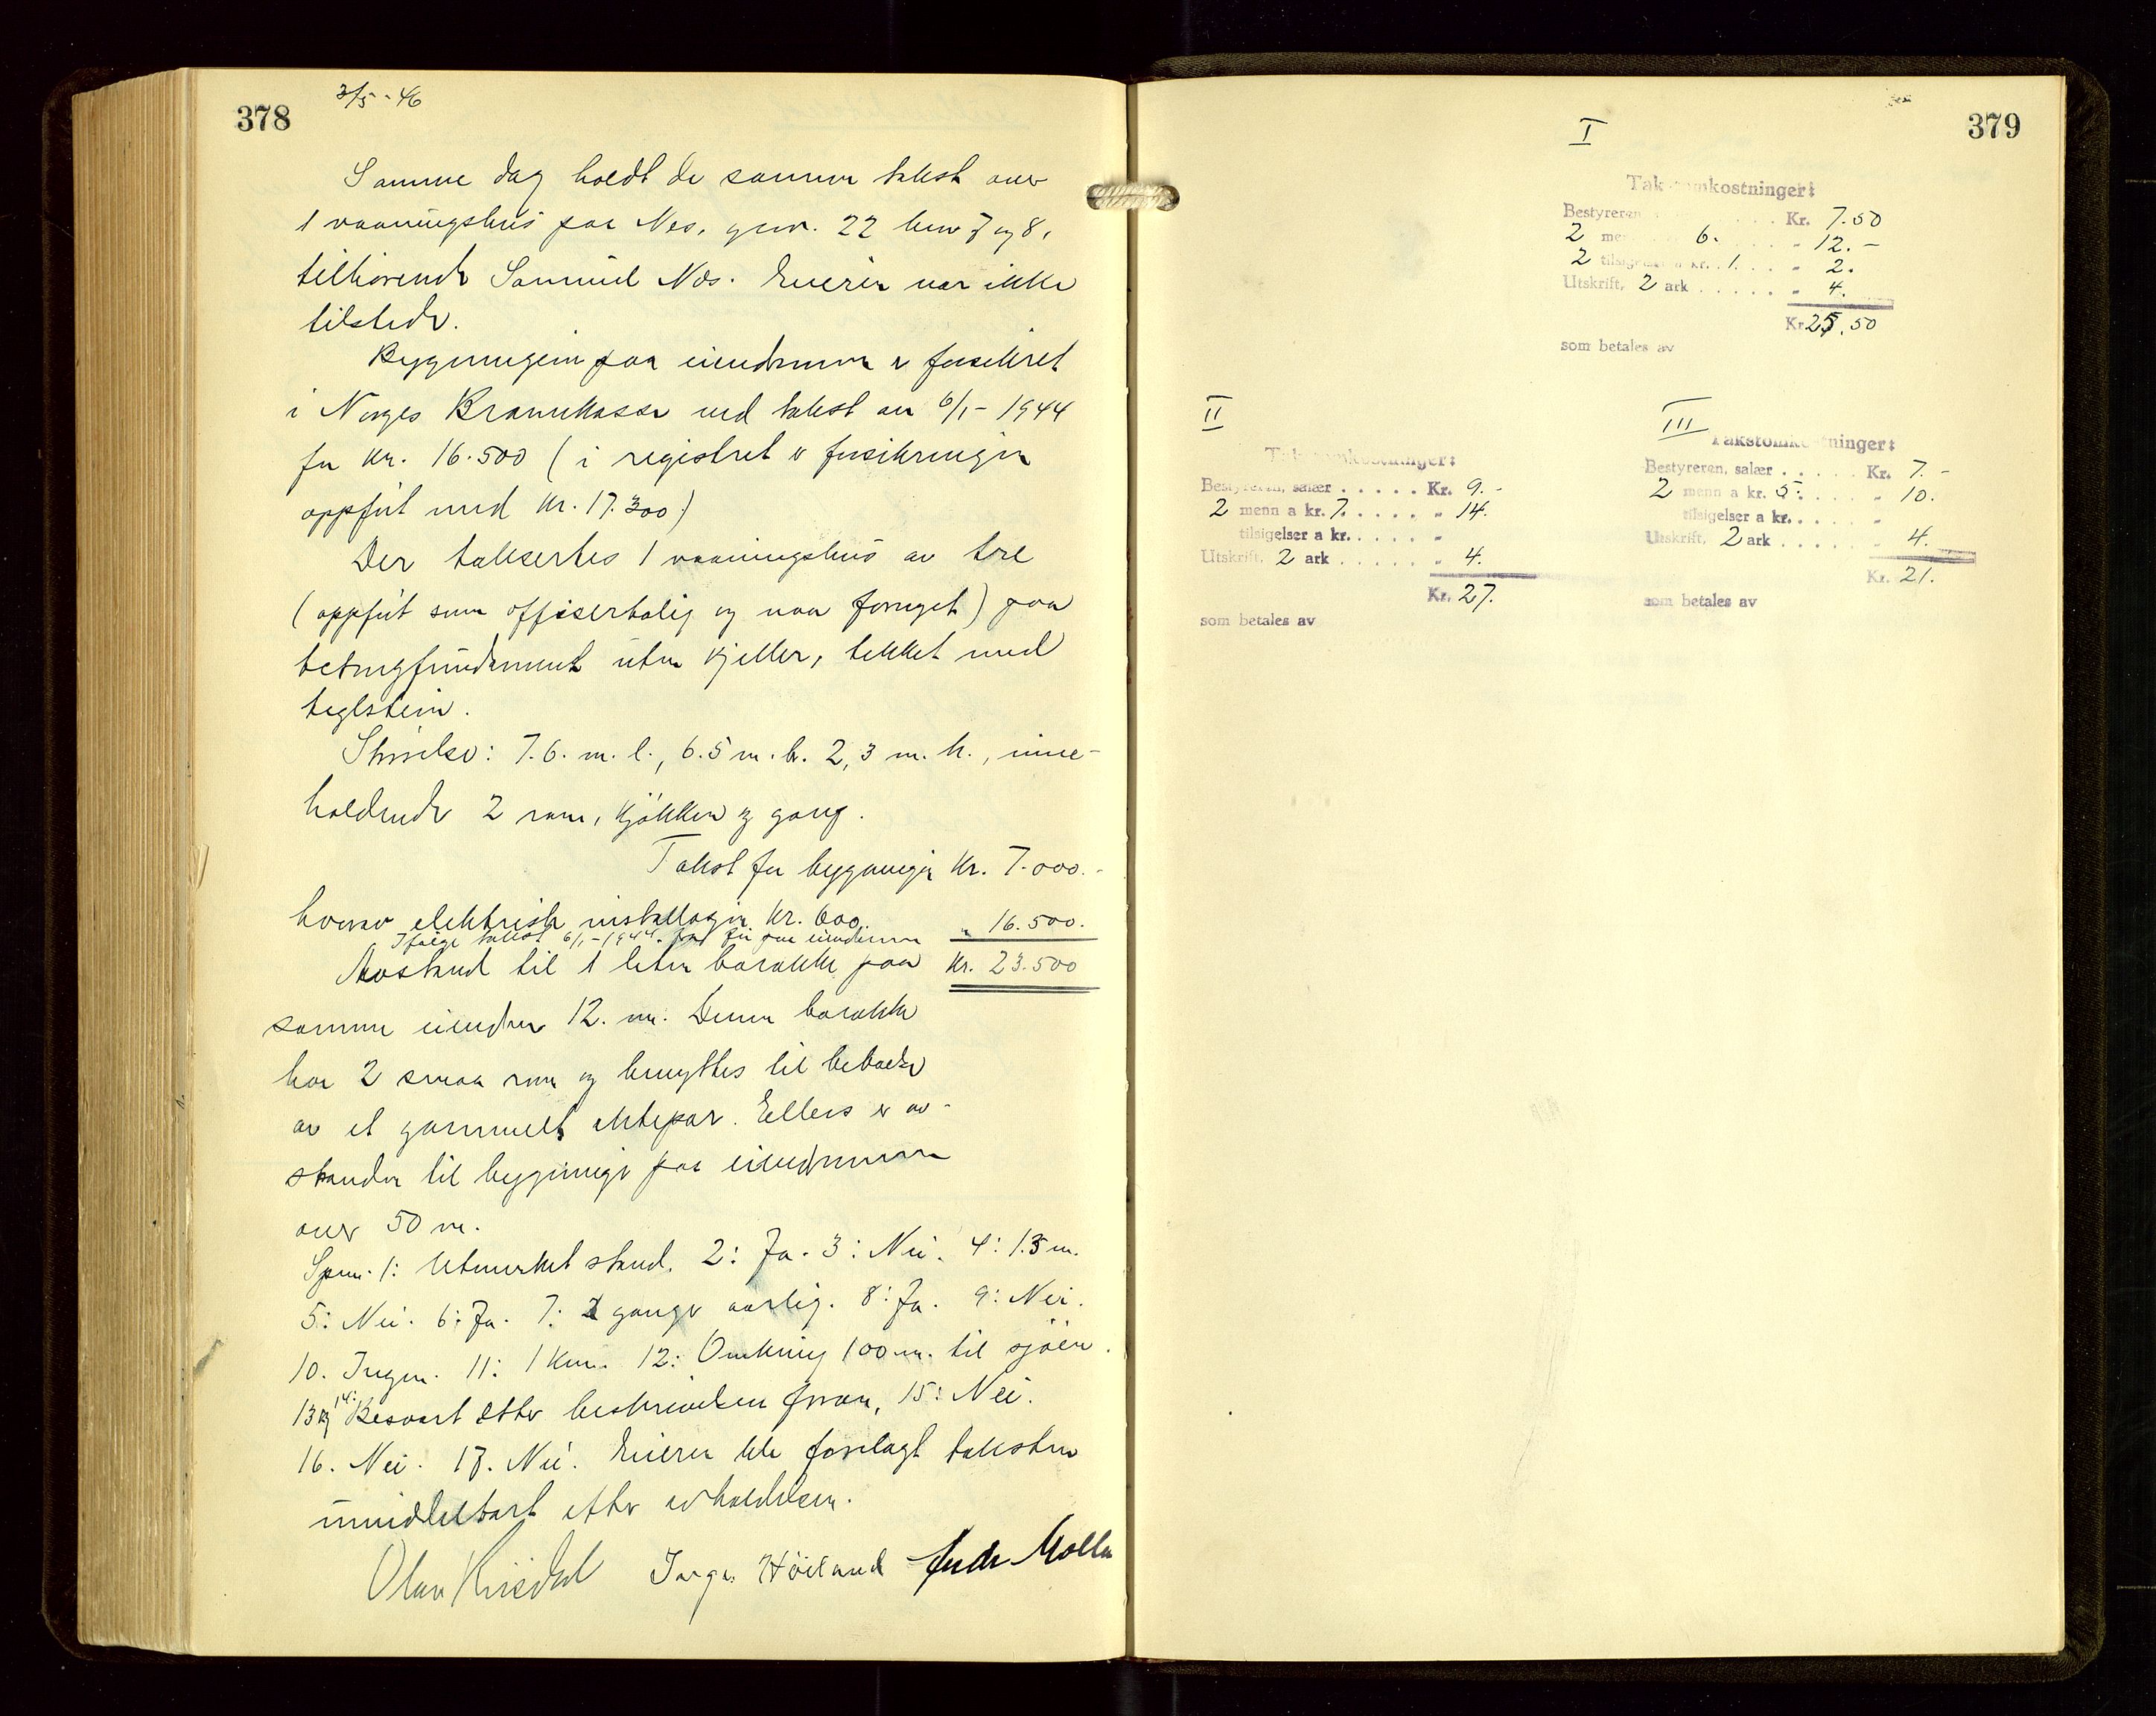 378
3/5 - 46
Samme dag holdt de samme takst over
1 vaaningshus paa Nes, gnr. 22 bnr 7 og 8,
tilhörende Samuel Nes. Eieren var ikke
tilstede.
Bygningen paa eiendommen er forsikret
i Norges Brannkasse ved takst av 6/1 - 1944
for kr. 16.500 (i registret er forsikringen
oppfört med kr. 17.300)
Der takseertes 1 vaaningshus av tre
(oppfört som offisersbolig og naa fornyet) paa
betongfundament uten kjeller, tekket med
teglstein.
Störrelse: 7.6. m. l., 6.5 m. br. 2,3 m. h., inne-
holdende 2 rom, kjökken og gang.
Takst for bygningen Kr. 7.000.-
hvorav elektrisk installasjon kr. 600.
Ifölge takst 6/1 - 1944 för paa eiendommen " 16.500.
Kr. 23.500
Avstand til 1 liten barakke paa
samme eiendom 12. m. Denne barakke
har 2 smaa rom og benyttes til beboelse
av et gammelt ektepar. Ellers er av-
standen til bygninger paa eiendommen
over 50 m.
Spm. 1: Utmerket stand. 2: Ja. 3: Nei. 4: 1.3 m.
5: Nei. 6: Ja. 7: 2 ganger aarlig. 8: Ja. 9: Nei.
10. Ingen. 11: 1 km. 12: Omkring 100 m. til sjöen.
13 og 14: Besvart etter beskrivelsen foran, 15: Nei.
16. Nei. 17. Nei. Eieren ble forelagt taksten
umiddelbart etter avholdelsen.
Olav Inga Höiland Molla
379
I
Takstomkostninger:
Bestyreren . . . . Kr. 7.50
2 me 6. . . . . " 12.-
2 tilsigelser a kr. 1. . . . " 2.
Utskrift, 2 ark . . . . . " 4.
Kr. 25.50
som betales av
II
Takstomkostninger:
Bestyreren, salær . . . . . Kr. 9.-
2 menn a kr. 7. . . . . " 14.
tilsigelser a kr. . . . . "
Utskrift, 2 ark . . . . . " 4.
Kr. 27.
som betales av
III
Takstomkostninger:
Bestyreren, salær . . . . . Kr. 7.-
2 menn a kr. 5. . . . . " 10.
tilsigelser a kr. . . . . "
Utskrift, 2 ark . . . . . " 4.
Kr. 21.
som betales av